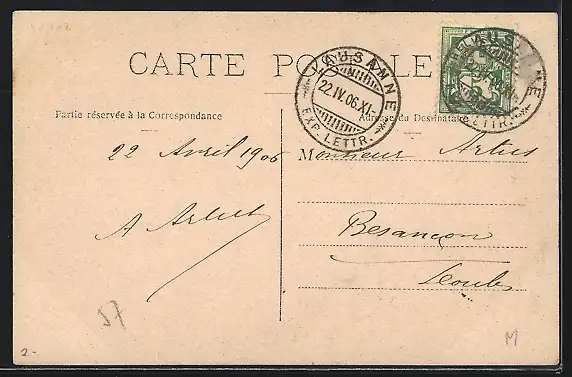 CARTE POSTALE
LAUSANNE
22.IV.06.XI-
EXP. LETTR.
HELVETIA
5
LAUSANNE
LETTR.
Partie réservée à la Correspondance
Adresse du Destinataire
22 Avril 1906
Monsieur Artus
A Artus
Besançon
Doubs
57
M
2.-